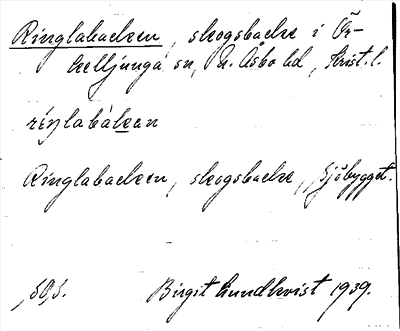 Ringlabacken, skogsbacke i Ör-
kelljunga sn, N. Åsbo hd, Krist. l.
ríŋlabàkan
Ringlabacken, skogsbacke, Sjöbygget.
Birgit Lundkvist 1939.